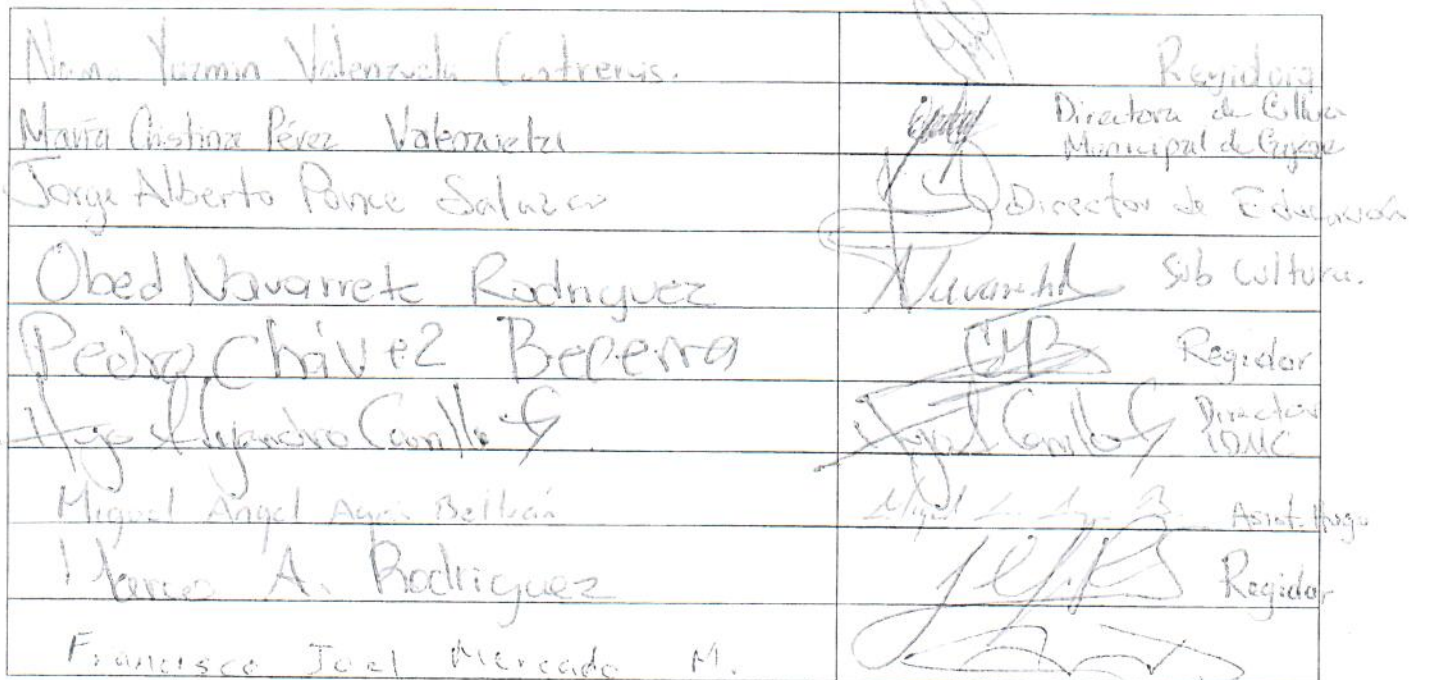 Yuzmin Valenzuela Contreras. Regidora
María Cristina Pérez Valenzuela Directora de Cultura
Municipal de
Jorge Alberto Ponce Salazar Director de Educación
Obed Navarrete Rodriguez Navarrete Sub Cultura.
Pedro Chávez Beperra Regidor
Hugo Alejandro Carrillo G Hugo A Carrillo G Director
IDMC
Miguel Angel Beltrán Miguel Asist. Hugo
Marco A. Rodriguez Regidor
Francisco Joel Mercado M.